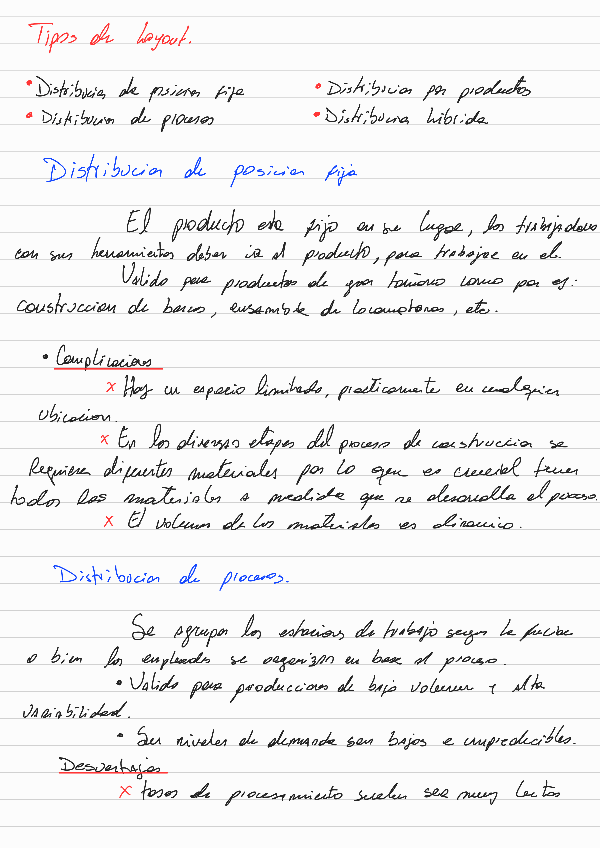 Tipos de Layout.
• Distribucion de posicion fija • Distribucion por productos
• Distribucion de procesos • Distribucion hibrida
Distribucion de posicion fija
El producto esta fijo en su lugar, los trabajadores
con sus herramientas deben ir al producto, para trabajar en el.
Valido para productos de gran tamaño como por ej:
construccion de barcos, ensamble de locomotoras, etc.
• Complicaciones
x Hay un espacio limitado, practicamente en cualquier
ubicacion.
x En las diversas etapas del proceso de construccion se
Requieren diferentes materiales por lo que es crucial tener
todos los materiales a medida que se desarrolla el proceso.
x El volumen de los materiales es dinamico.
Distribucion de procesos.
Se agrupan las estaciones de trabajo segun la funcion
o bien los empleados se organizan en base al proceso.
• Valido para producciones de bajo volumen y alta
variabilidad.
• Sus niveles de demanda son bajos e impredecibles.
Desventajas
x tasas de procesamiento suelen ser muy lentas